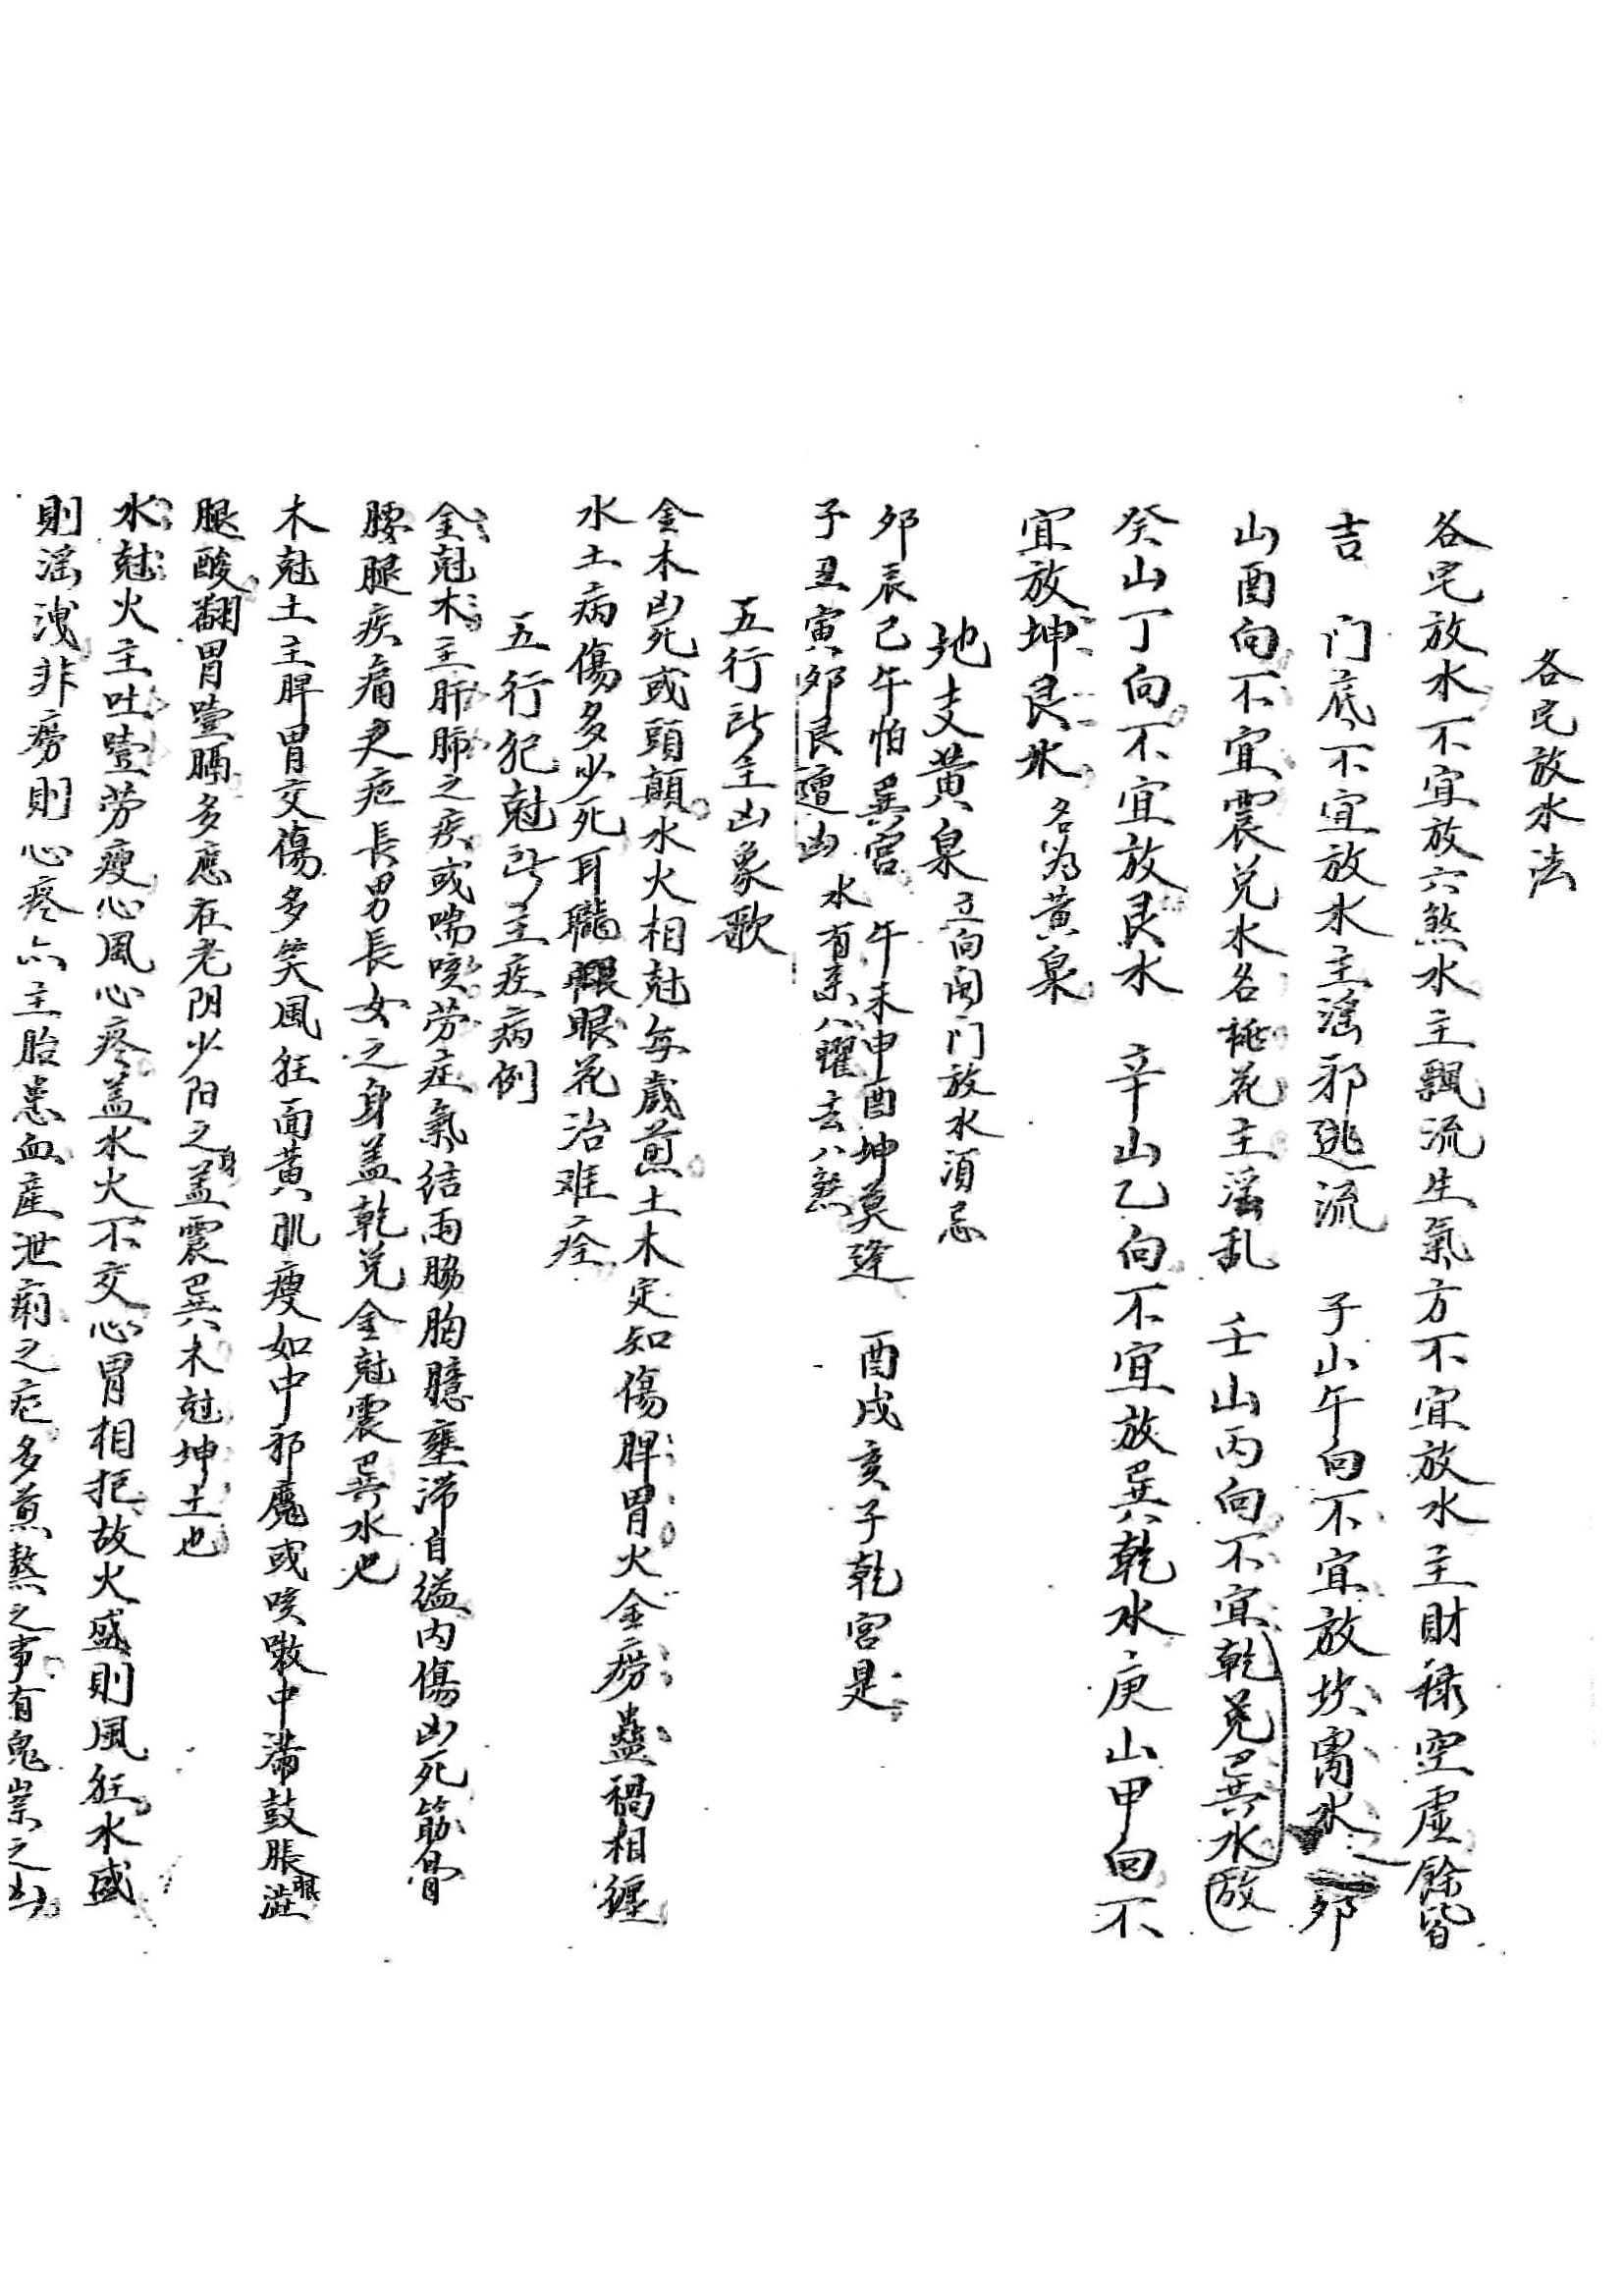 各宅放水法
各宅放水不宜放六煞水主飄流生氣方不宜放水主財禄空虚餘皆
吉　门底不宜放水主滛邪逃流　子山午向不宜放坎离水　卯
山酉向不宜震兑水名桃花主滛乱　壬山丙向不宜乾兑巽水放
癸山丁向不宜放艮水　辛山乙向不宜放巽乾水庚山甲向不
宜放坤艮水　名为黄泉
地支黄泉　立向開门放水須忌
卯辰巳午怕巽宫　午未申酉坤莫逢　酉戌亥子乾宫是
子丑寅卯艮遭凶　水有来八曜去八煞
五行所主凶象歌
金木凶死或頭顛水火相尅每歲煎土木定知傷脾胃火金痨蠱禍相纏
水土病傷多少死耳聾眼花治难痊
五行犯尅所主疾病例
金尅木主肝肺之疾或喘咳劳症氣结兩脇胸臆壅滞自缢内傷凶死筋骨
腰腿疾痛之疤長男長女之身盖乾兑金尅震巽木也
木尅土主脾胃交傷多笑風狂面黄肌瘦如中邪魔或咳嗽中滿鼓脹澁眼
腿酸翻胃噎膈多應在老阴少阳之身盖震巽木尅坤土也
水尅火主吐噎劳瘦心風心疼盖水火不交心胃相拒故火盛則風狂水盛
則滛洩非痨則心疼亦主胎患血産泄痢之疤多煎熬之事有鬼祟之凶